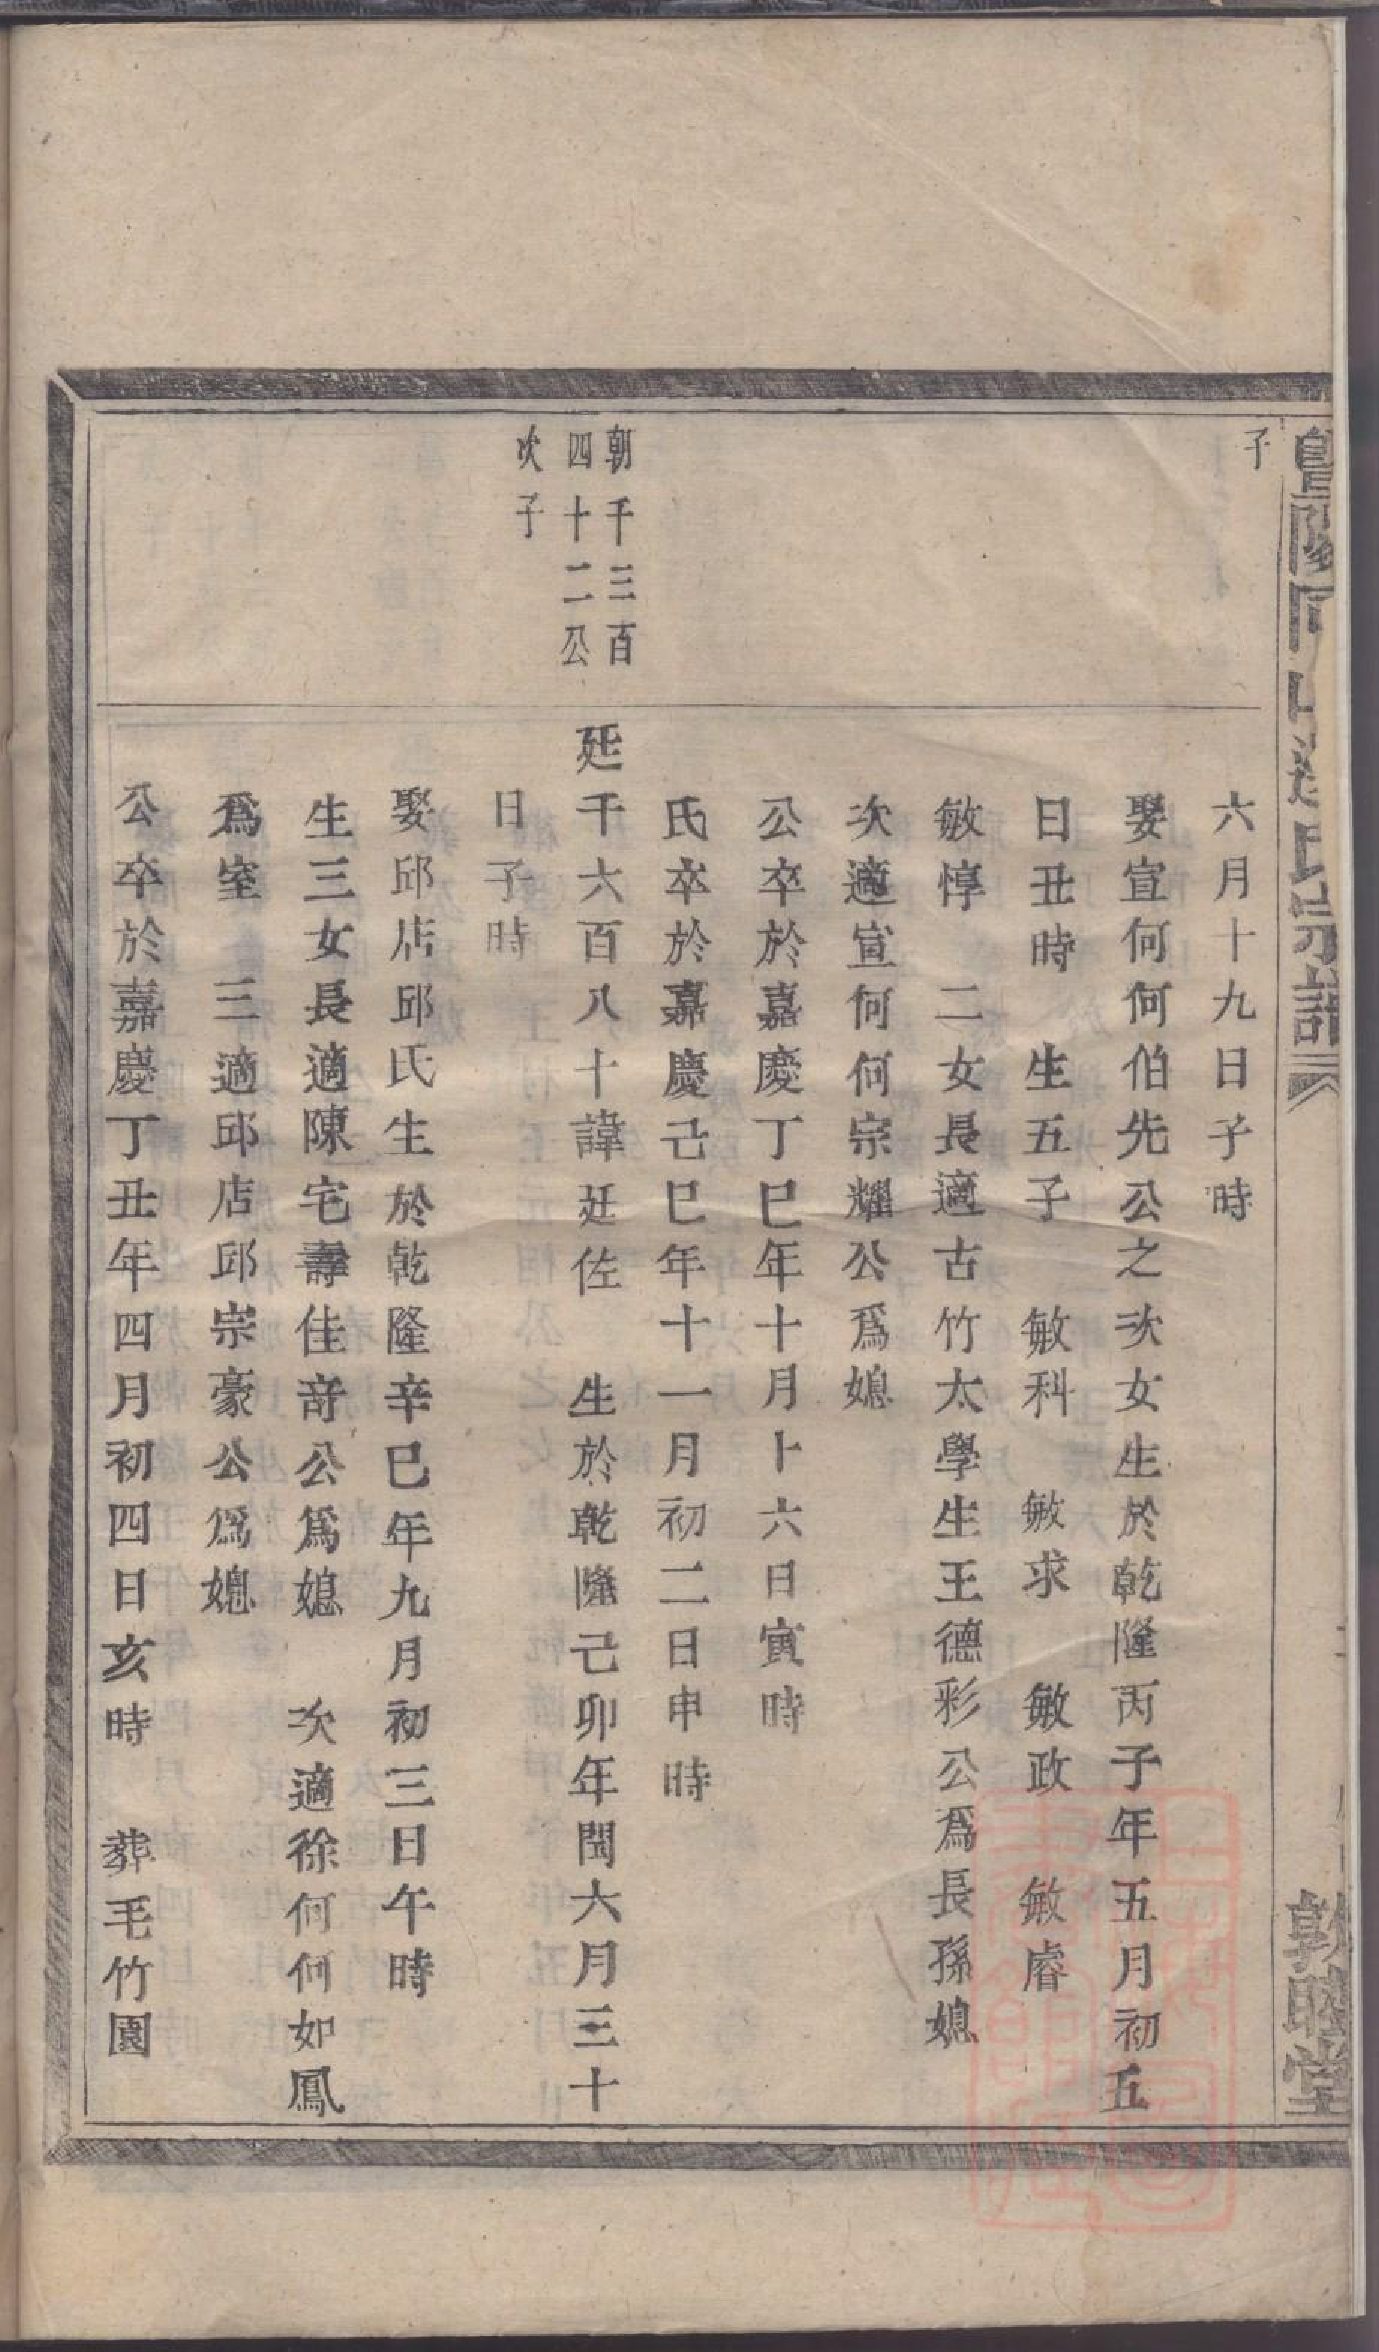 暨陽同山邊氏宗譜
敦睦堂
子
六月十九日子時
娶宣何何伯先公之次女生於乾隆丙子年五月初五
日丑時 生五子 敏科 敏求 敏政 敏睿
敏惇 二女長適古竹太學生王德彩公爲長孫媳
次適宣何何宗耀公爲媳
公卒於嘉慶丁巳年十月十六日寅時
氏卒於嘉慶己巳年十一月初二日申時
朝千三百
四十二公
次子
廷千六百八十諱廷佐 生於乾隆己卯年閏六月三十
日子時
娶邱店邱氏生於乾隆辛巳年九月初三日午時
生三女長適陳宅壽佳奇公爲媳 次適徐何何如鳳
爲室 三適邱店邱宗豪公爲媳
公卒於嘉慶丁丑年四月初四日亥時 葬毛竹園